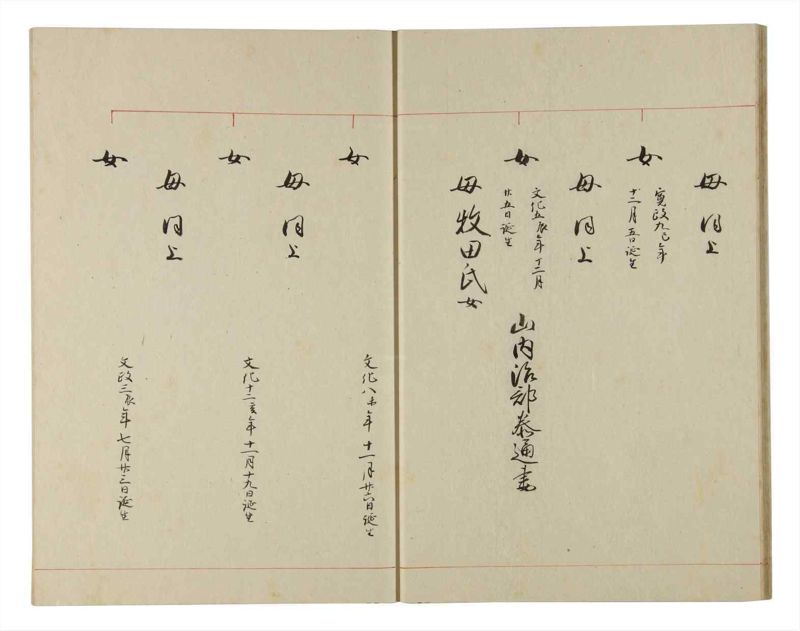 母同上
女
寛政九巳年
十二月五日誕生
母同上
女
文化五辰年十二月
廿五日誕生
山内治部泰通妻
母牧田氏女
女
文化八未年十一月廿六日誕生
母同上
女
文化十二亥年十一月十九日誕生
母同上
女
文政三辰年七月廿三日誕生